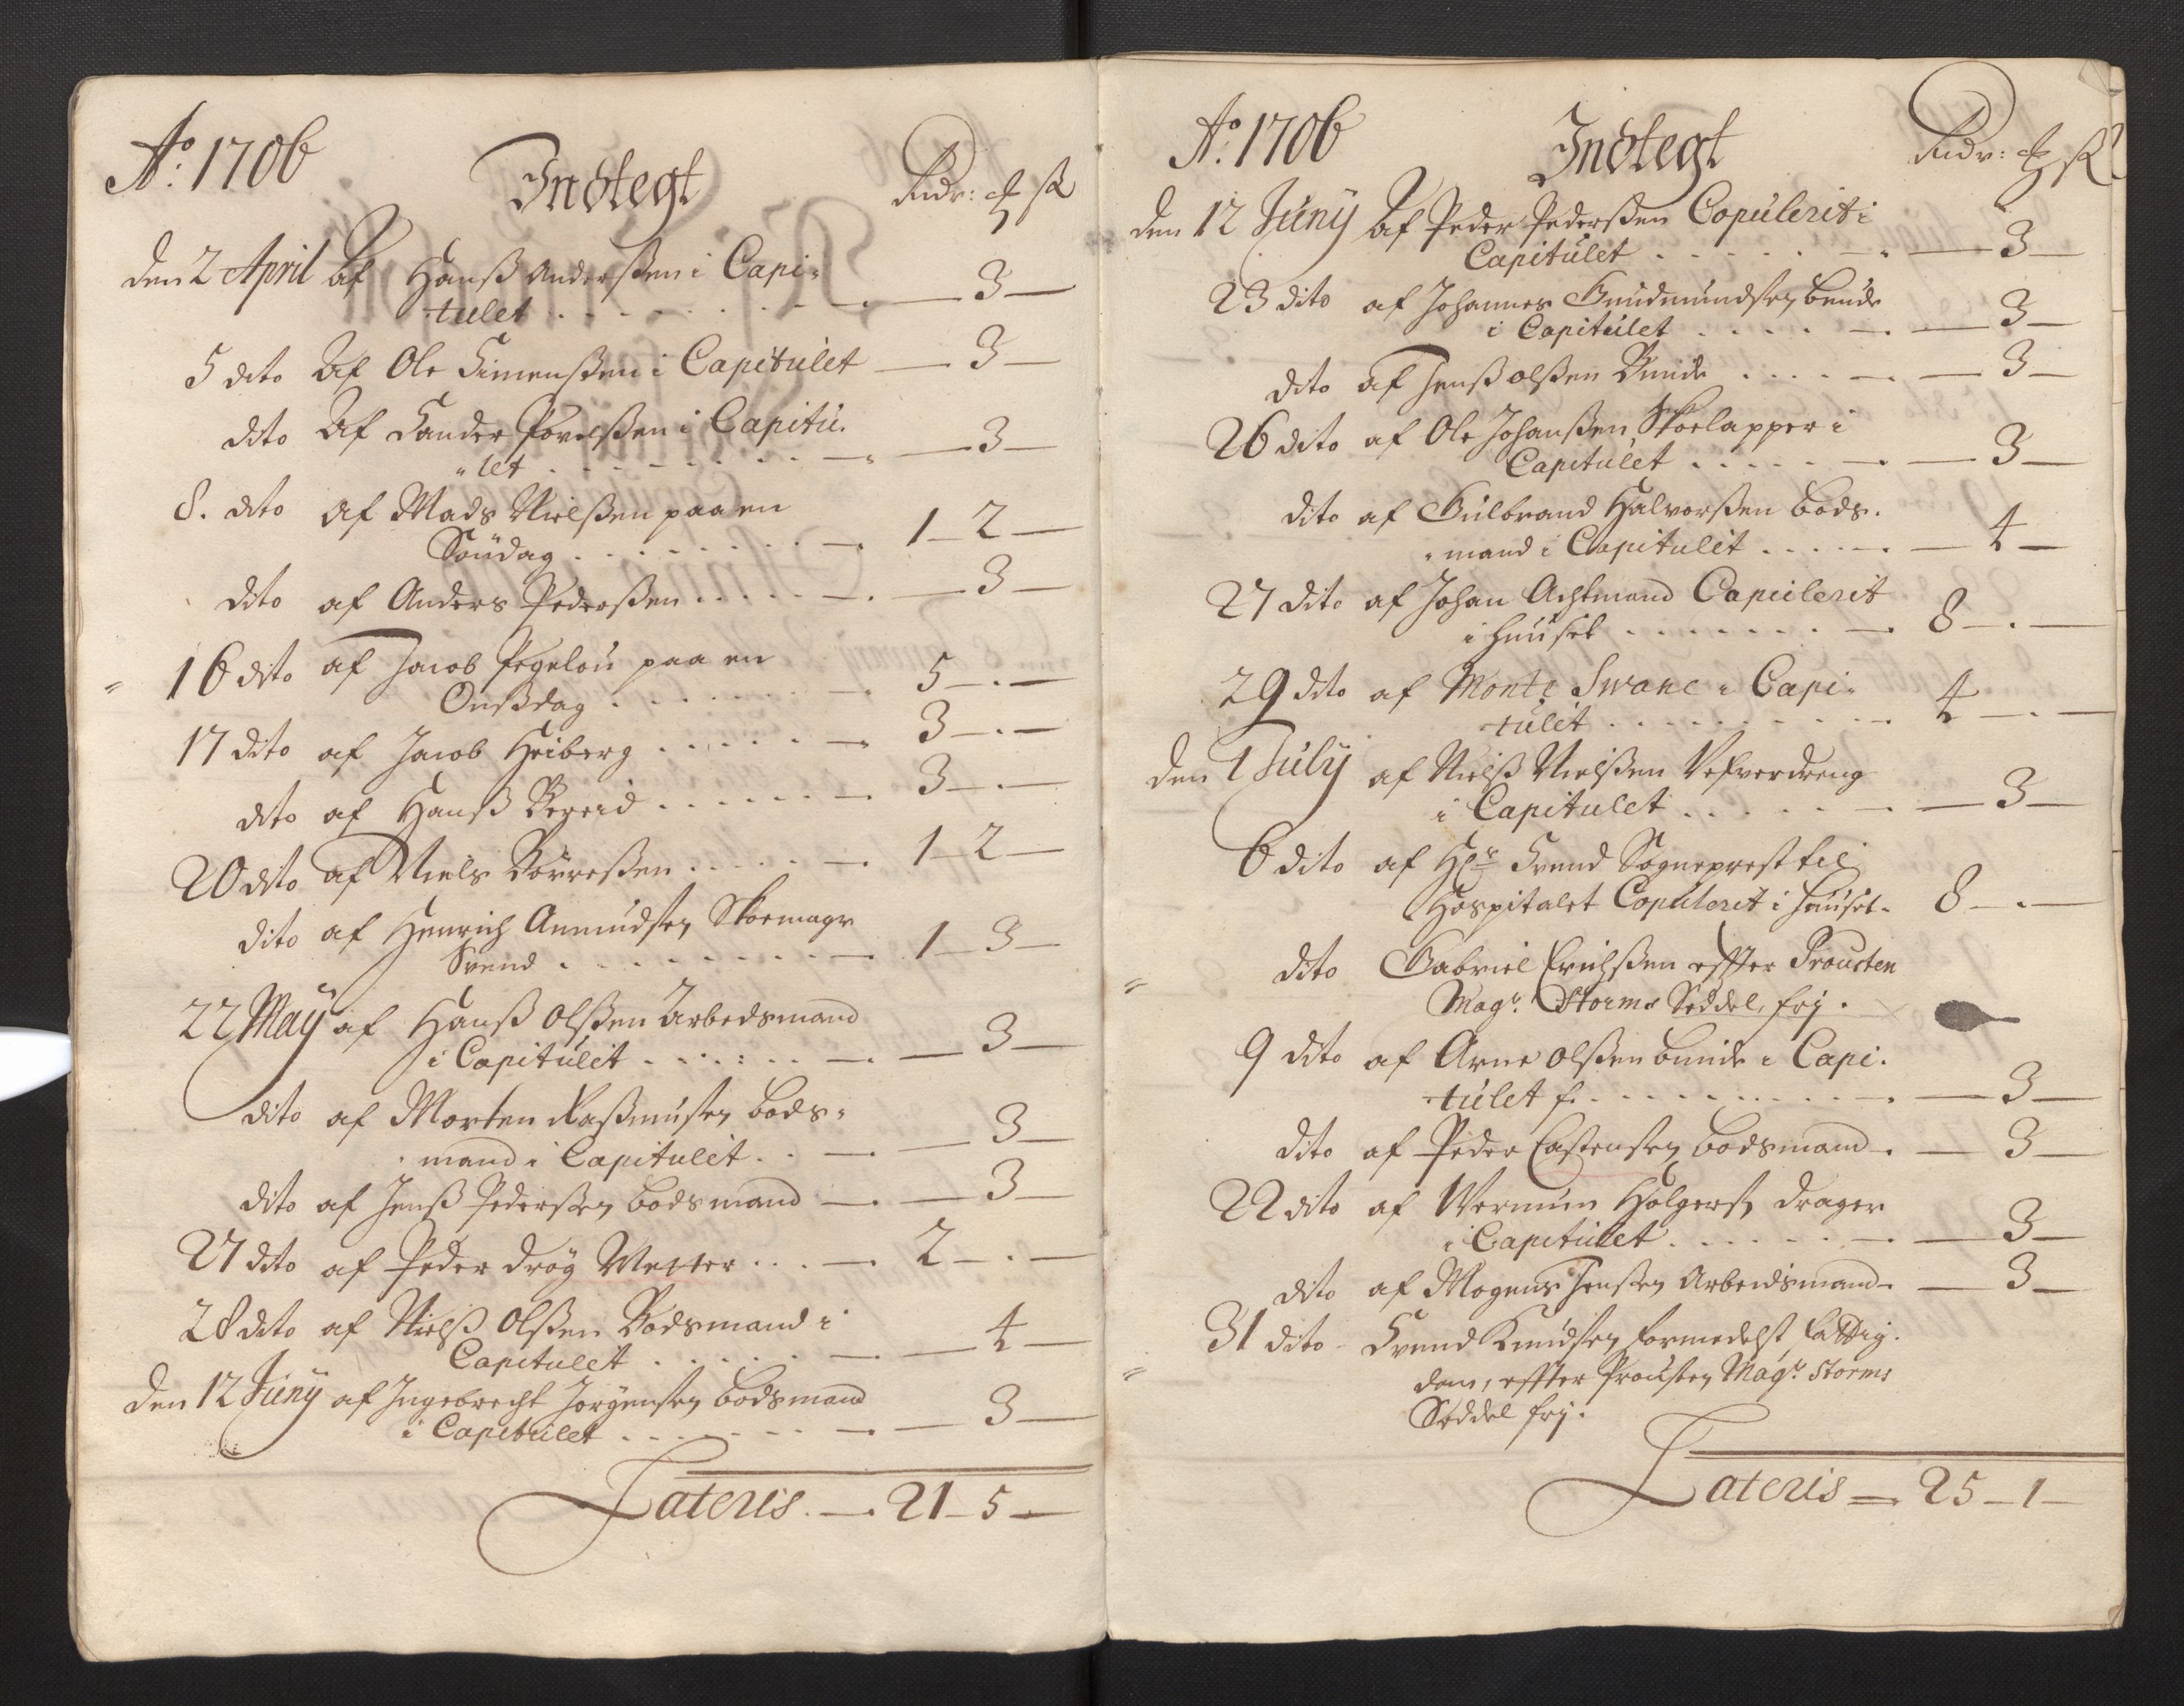 Ao: 1706
Indtegt
Rdr: ₰ ß
den 2 April af Hanß Anderßen i Capi-
tulet . . . . . . . — 3 —
5 dito af Ole Simenßen i Capitulet — 3 —
dito af Sander Povelßen i Capitu-
let . . . . . . . — 3 —
8. dito af Mads Nielßen paa en
Søndag . . . . . . . 1 — 2 —
dito af Anders Pederßen . . . . . — 3 —
16 dito af Jacob Pegelou paa en
Onßdag . . . . . . 5 — . —
17 dito af Jacob Heiberg . . . . . 3 — . —
dito af Hanß . . . . . . 3 — . —
20 dito af Niels Børreßen . . . . . 1 — 2 —
dito af Henrich Anmudsen Skoemager
Svend . . . . . . . . 1 — 3 —
22 May af Hanß Olßen Arbedsmand
i Capitulet . . . . . . — 3 —
dito af Morten Raßmusen Bods-
mand i Capitulet . . — 3 —
dito af Jenß Pederßen Bodsmand — 3 —
27 dito af Peder Drøg Wetter . . . 2 — . —
28 dito af Nielß Olßen Bodsmand i
Capitulet . . . . . — 4 —
den 12 Juny af Ingebrecht Jørgensen Bodsmand
i Capitulet . . . . . . — 3 —
Lateris . — 21 — 5 —
Ao: 1706
Indtegt
Rdr: ₰ ß
den 12 Juny af Peder Pederßen Copulerit i
Capitulet . . . . . — 3 —
23 dito af Johannes Gundmundsen Bunde
i Capitulet . . . . . — 3 —
dito af Jenß Olßen Bunde . . . . — 3 —
26 dito af Ole Johanßen Skoelapper i
Capitulet . . . . . — 3 —
dito af Gulbrand Halvorßen Bods-
mand i Capitulet . . . . . — 4 —
27 dito af Johan Achtmand Capulerit
i Huuset . . . . . . . 8 — . —
29 dito af Monte Swane i Capi-
tulet . . . . . . . . . 4 — . —
den 1 July af Nielß Nielßen Vefverdreng
i Capitulet . . . . . — 3 —
6 dito af Hr Svend Sogneprest til
Hospitalet Copulerit i Huuset. 8 — . —
dito Gabriel Erichßen effter Prousten
Magr: Storms Seddel, frj.
9 dito af Arne Olßen Bunde i Capi-
tulet f. . . . . . . . . — 3 —
dito af Peder Castensen Bodsmand . — 3 —
22 dito af Wermun Holgersen Drager
i Capitulet . . . . . — 3 —
dito af Mogens Jensen Arbeidsmand — 3 —
31 dito Svend Knudsen formedelst fattig-
dom, effter Prousten Magr: Storms
Seddel frj.
Lateris = 25 — 1 —